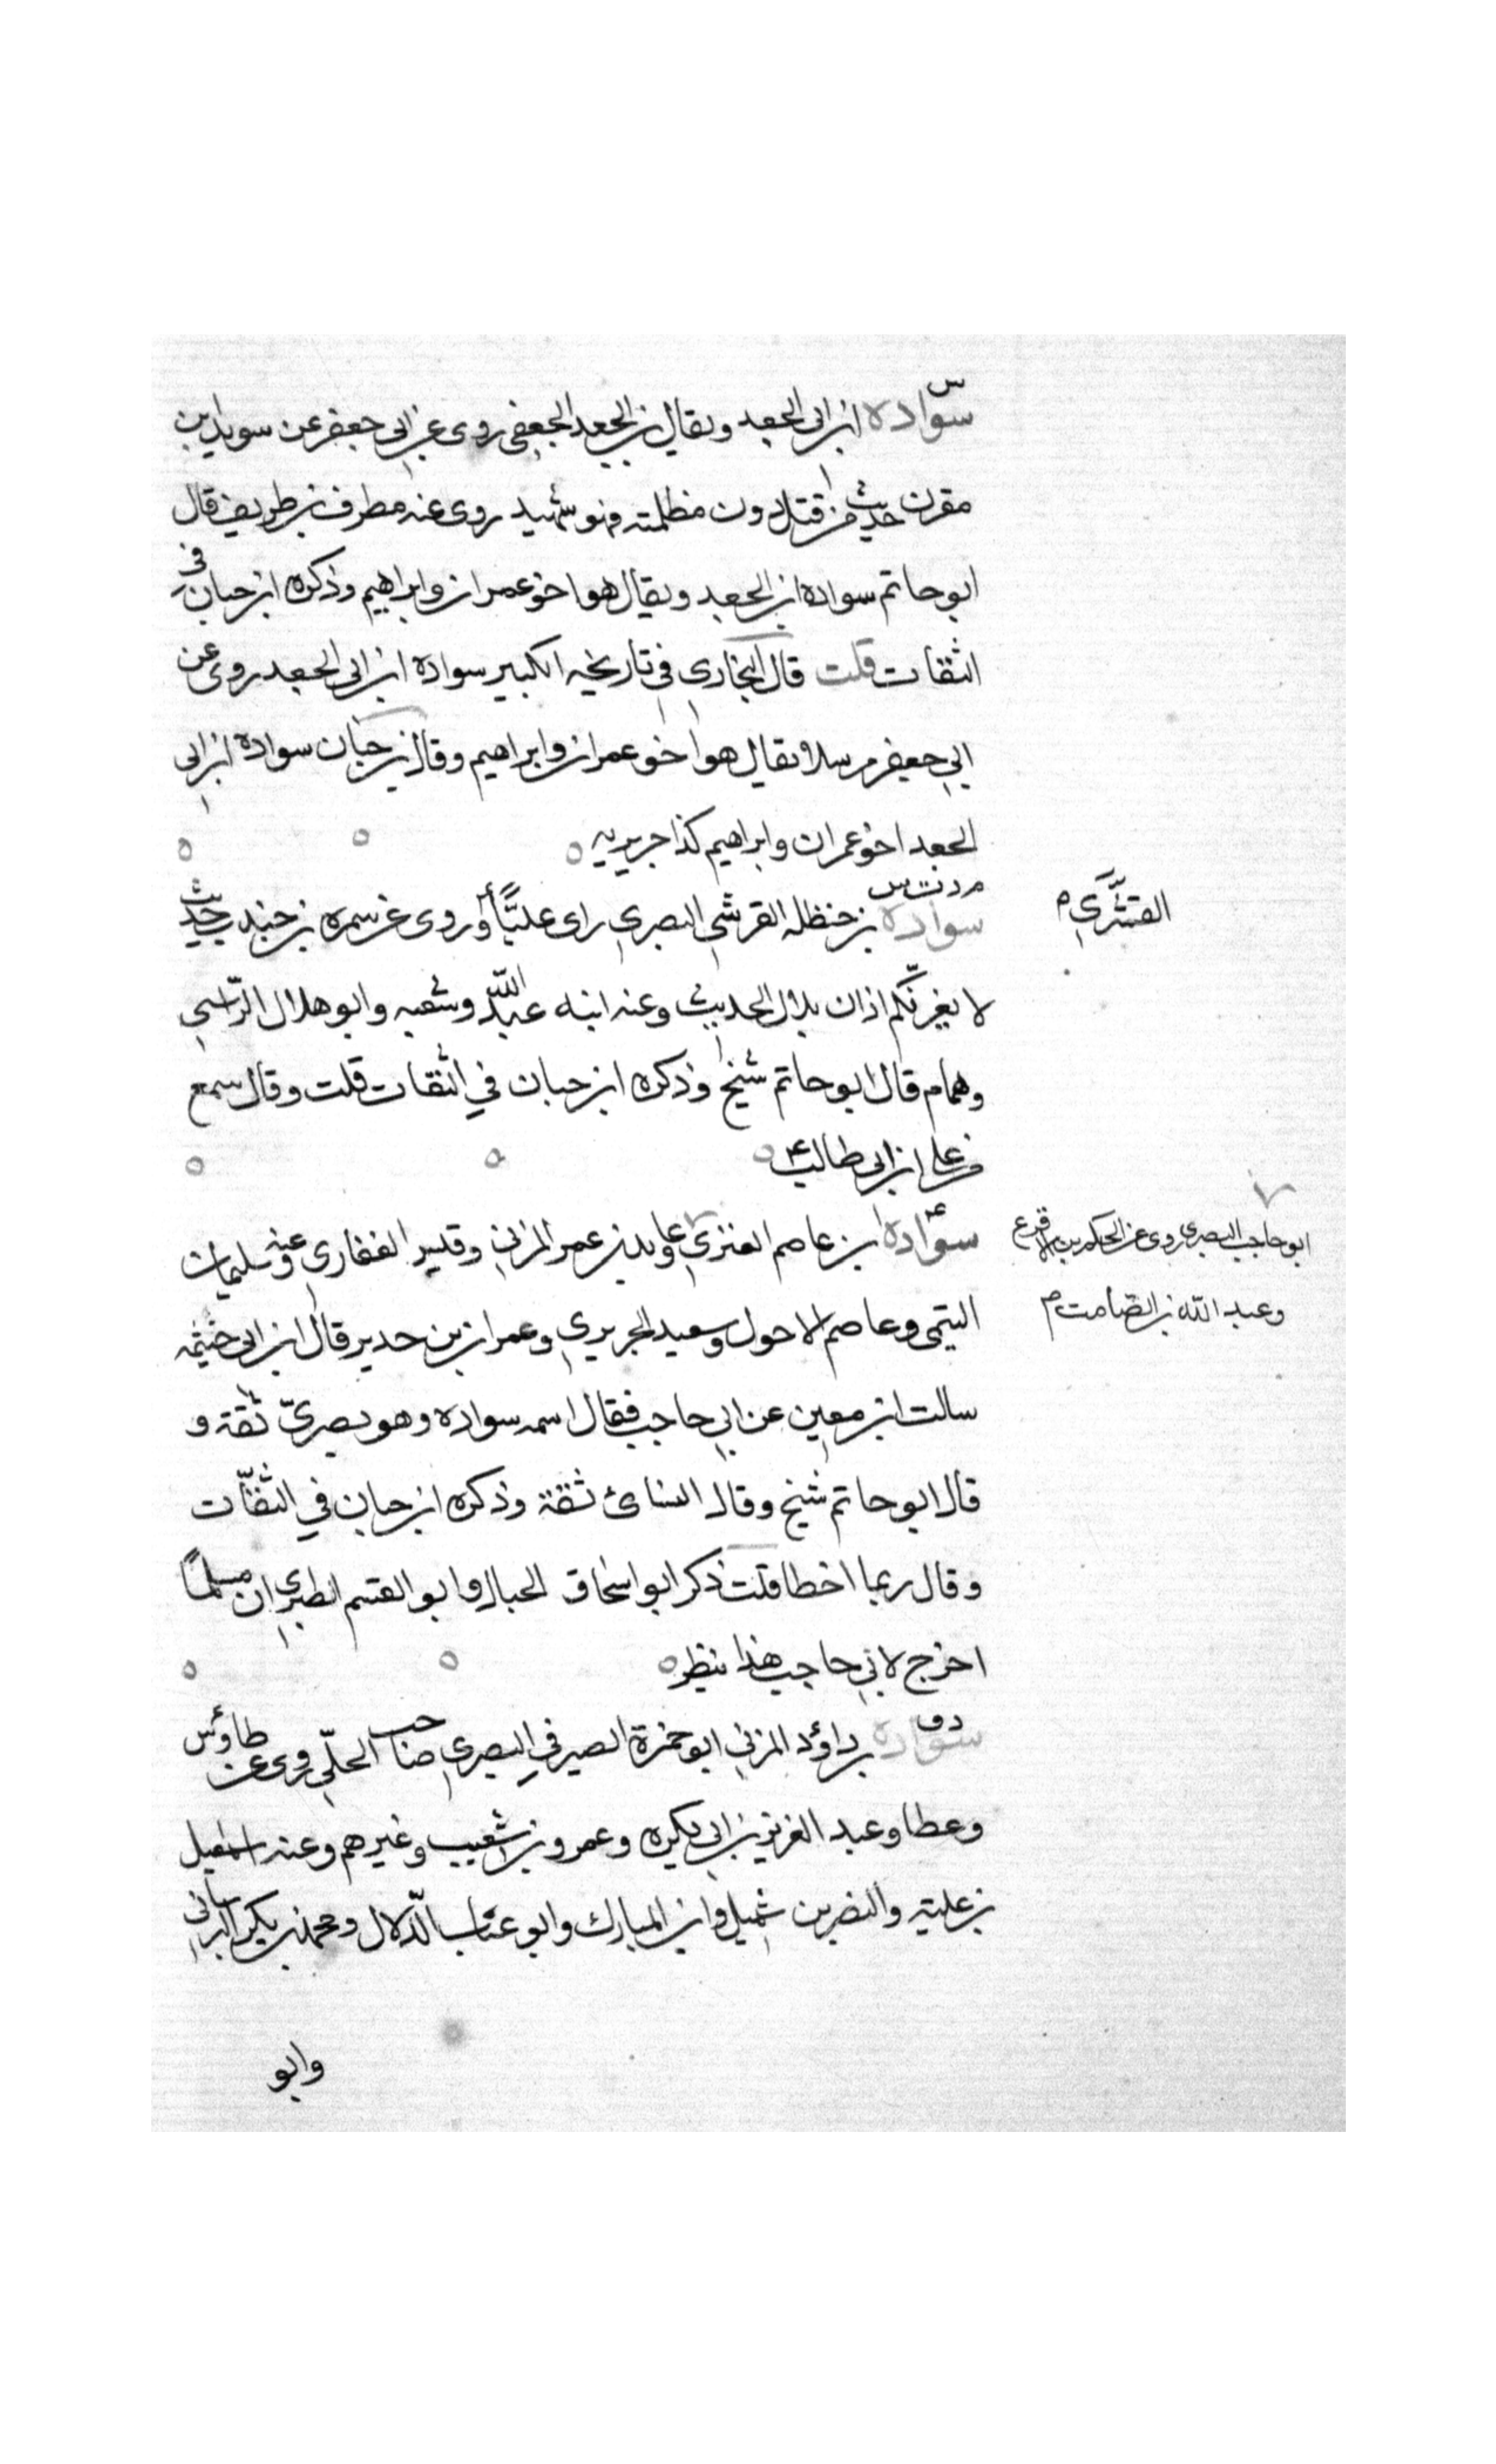 س
سوادة ابن ابي الجعد ويقال بن الجعد الجعفي روى عن ابي جعفر عن سويد بن
مقرن حديث من قتل دون مظلمته فهو شهيد روى عنه مطرف بن طريف قال
ابو حاتم سواده ابن الجعد ويقال هو اخو عمران وابراهيم وذكره ابن حبان في
الثقات قلت قال البخاري في تاريخه الكبير سوادة ابن ابي الجعد روى عن
ابي جعفر مرسلا يقال هو اخو عمران وابراهيم وقال بن حبان سوادة ابن ابي
الجعد اخو عمران وابراهيم كذا
م د ت س
سوادة بن حنظله القرشي البصري راى عليًّا وروى عن سمره بن جندب حديث
القشيري م
لا يغرنّكم اذان بلال الحديث وعنه ابنه عبد الله وشعبه وابو هلال الرّاسبي
وهمام قال ابو حاتم شيخ وذكره ابن حبان في الثقات قلت وقال سمع
من علي ابن ابي طالب
سوّادة بن عاصم العنزي وعايد بن عمر المزني وقيس الغفاري وعنه سليمان
ابو حاجب البصري روى عن الحكم بن الاقرع
وعبد الله بن الصامت م
التيمي وعاصم الاحول وسعيد الجريري وعمران بن حدير قال ابن ابي خيثمه
سالت ابن معين عن ابي حاجب فقال اسمه سواده وهو بصريّ ثقة و
قال ابو حاتم شيخ وقال النسائ ثقة وذكره ابن حبان في الثقّات
وقال ربما اخطا قلت ذكر ابو اسحاق الحبال وابو القسم الطبري ان مسلمًا
اخرج لابي حاجب هذا ينظر
د ق
سوار بن داؤد المزني ابو حمزة الصيرفي البصري صاحب الحلّي روى عن طاوس
وعطا وعبد العزيز بن ابي بكره وعمرو بن شعيب وغيرهم وعنه اسمعيل
بن علية والنضر بن شميل وابن المبارك وابو عتاب الدّلال ومحمد بن بكر البرساني
وابو